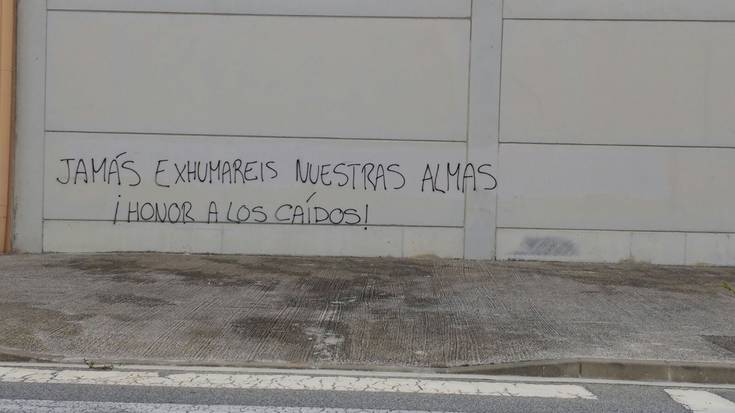 JAMÁS EXHUMAREIS NUESTRAS ALMAS
¡HONOR A LOS CAÍDOS!